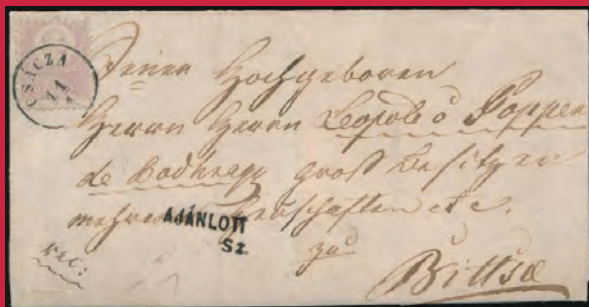 CSÁCZA
11
Seiner Hochgeboren
Herrn Herrn Leopold v Poppen
de Podhragy groß Besitzer
mehrerer Herschaften etc.
AJÁNLOTT
Sz.
rec:
zu
Bittse